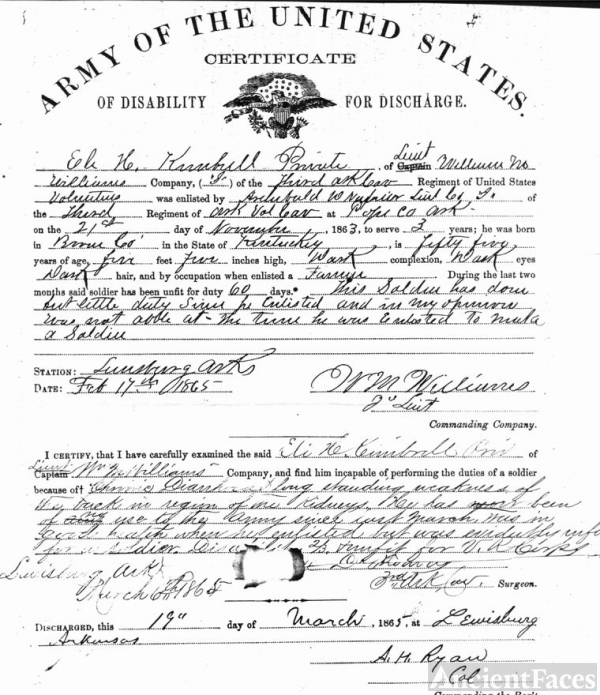 ARMY OF THE UNITED STATES.
CERTIFICATE
OF DISABILITY FOR DISCHARGE.
Eli H. Kimbrell Private, of Lieut Captain William N.
Williams Company, (I) of the Third Ark Cav Regiment of United States
Volunteers was enlisted by Archibald Napier Lieut Co, I. of
the Third Regiment of Ark Vol Cav at Pope Co Ark.
on the 21st day of November, 1863, to serve 3 years; he was born
in Co in the State of Kentucky, is fifty five
years of age, five feet five inches high, Dark complexion, Dark eyes
Dark hair, and by occupation when enlisted a Farmer During the last two
months said soldier has been unfit for duty 60 days.* This Soldier has done
but little duty Since he Enlisted and in my opinion
was not able at the time he was Enlisted to make
a Soldier
STATION: Ark
DATE: Feb 17th 1865
Wm Williams
2d Lieut
Commanding Company.
I CERTIFY, that I have carefully examined the said Eli H. Kimbrell of
Lieut Captain Wm N Williams Company, and find him incapable of performing the duties of a soldier
because of† long standing weakness of
the back in region of the kidneys. He has not been
of any use to the Army since last March was in
health when he enlisted but was
for a soldier. unfit for V. R. Corps
Lewisburg Ark
March 1865
3rd Ark Cav. Surgeon.
DISCHARGED, this 19" day of March, 1865, at Lewisburg
Arkansas
A. H. Ryan
Col
Commanding the Reg't.
AncientFaces